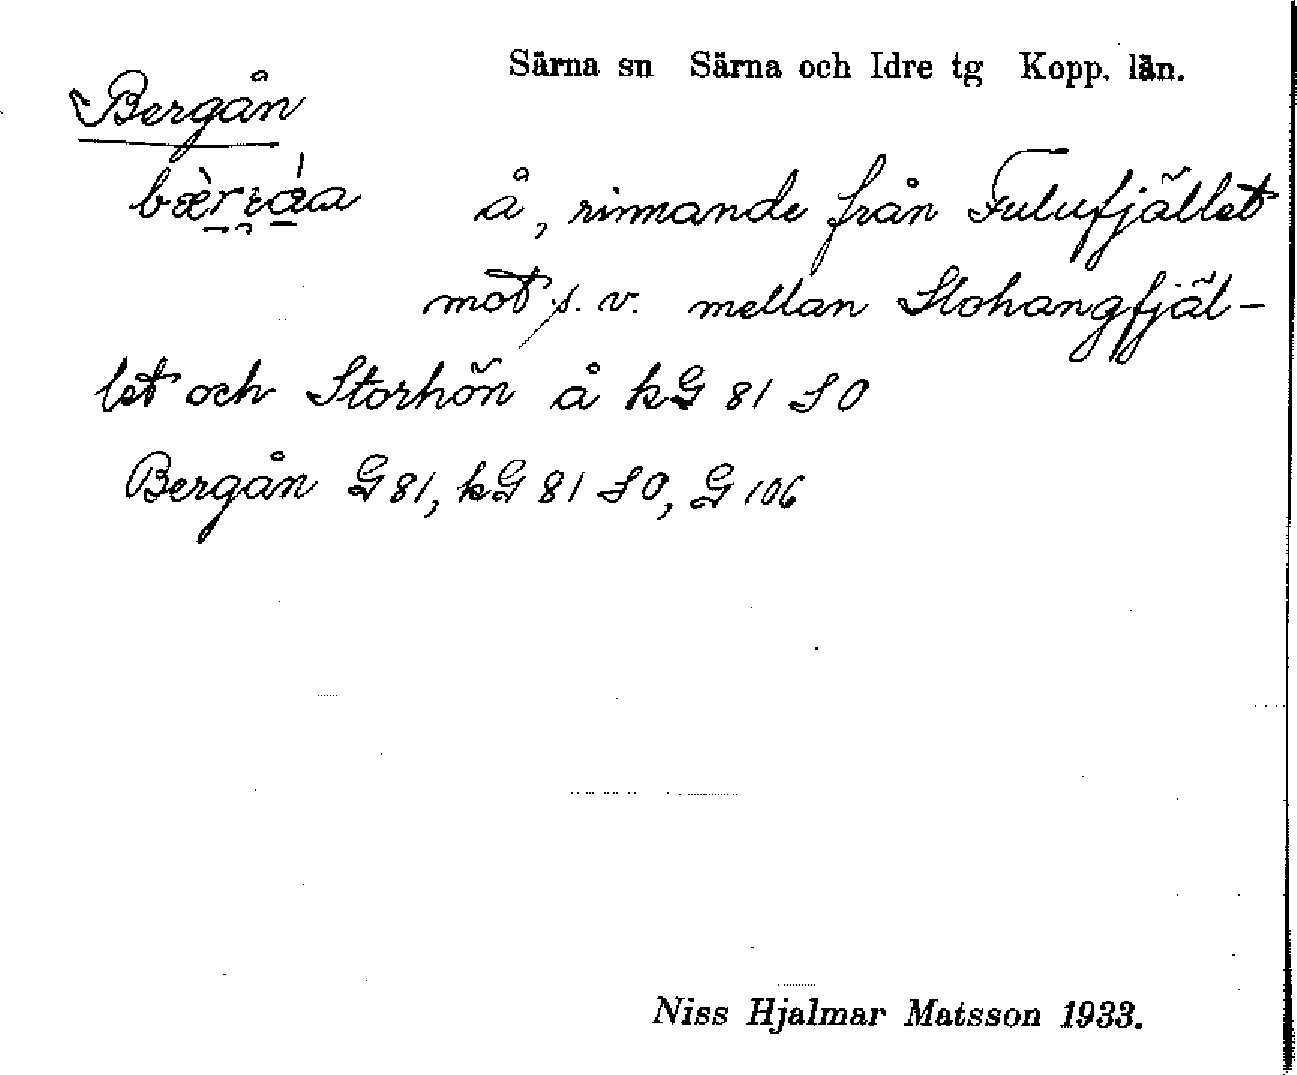 Särna sn Särna och Idre tg Kopp. län.
Bergån
å, rinnande från Fulufjället
mot s. v. mellan Slohangfjäl-
let och Storhön å kG 81 SO
Bergån G 81, kG 81 SO, G 106
Niss Hjalmar Matsson 1933.